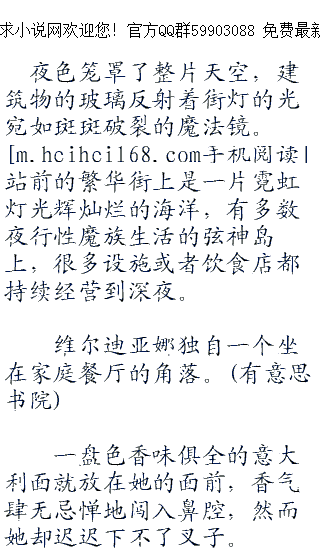 求小说网欢迎您! 官方QQ群59903088 免费最新
夜色笼罩了整片天空，建
筑物的玻璃反射着街灯的光
宛如斑斑破裂的魔法镜。
[m.hcihci168.com手机阅读|
站前的繁华街上是一片霓虹
灯光辉灿烂的海洋，有多数
夜行性魔族生活的弦神岛
上，很多设施或者饮食店都
持续经营到深夜。
维尔迪亚娜独自一个坐
在家庭餐厅的角落。(有意思
书院)
一盘色香味俱全的意大
利面就放在她的面前，香气
肆无忌惮地闯入鼻腔，然而
她却迟迟下不了叉子。